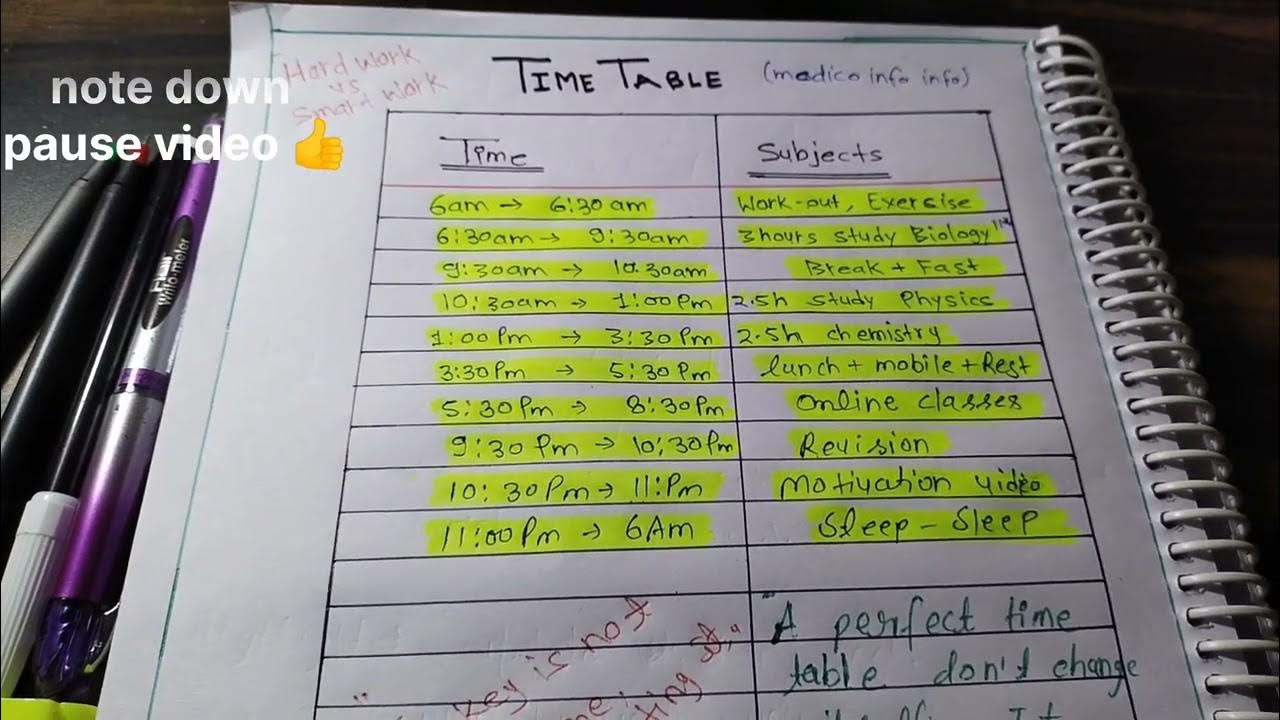 note down
pause video 👍
Hard work
vs
Smart work
TIME TABLE (medico info info)
Time Subjects
6am → 6:30am Work-out, Exercise
6:30am → 9:30am 3hours study Biology
9:30am → 10.30am Break + Fast
10:30am → 1:00Pm 2.5h study Physics
1:00Pm → 3:30Pm 2.5h chemistry
3:30Pm → 5:30Pm lunch + mobile + Rest
5:30Pm → 8:30Pm Online classes
9:30Pm → 10:30Pm Revision
10:30Pm → 11:Pm Motivation video
11:00Pm → 6Am Sleep - Sleep
"A perfect time
table don't change
key is not
It